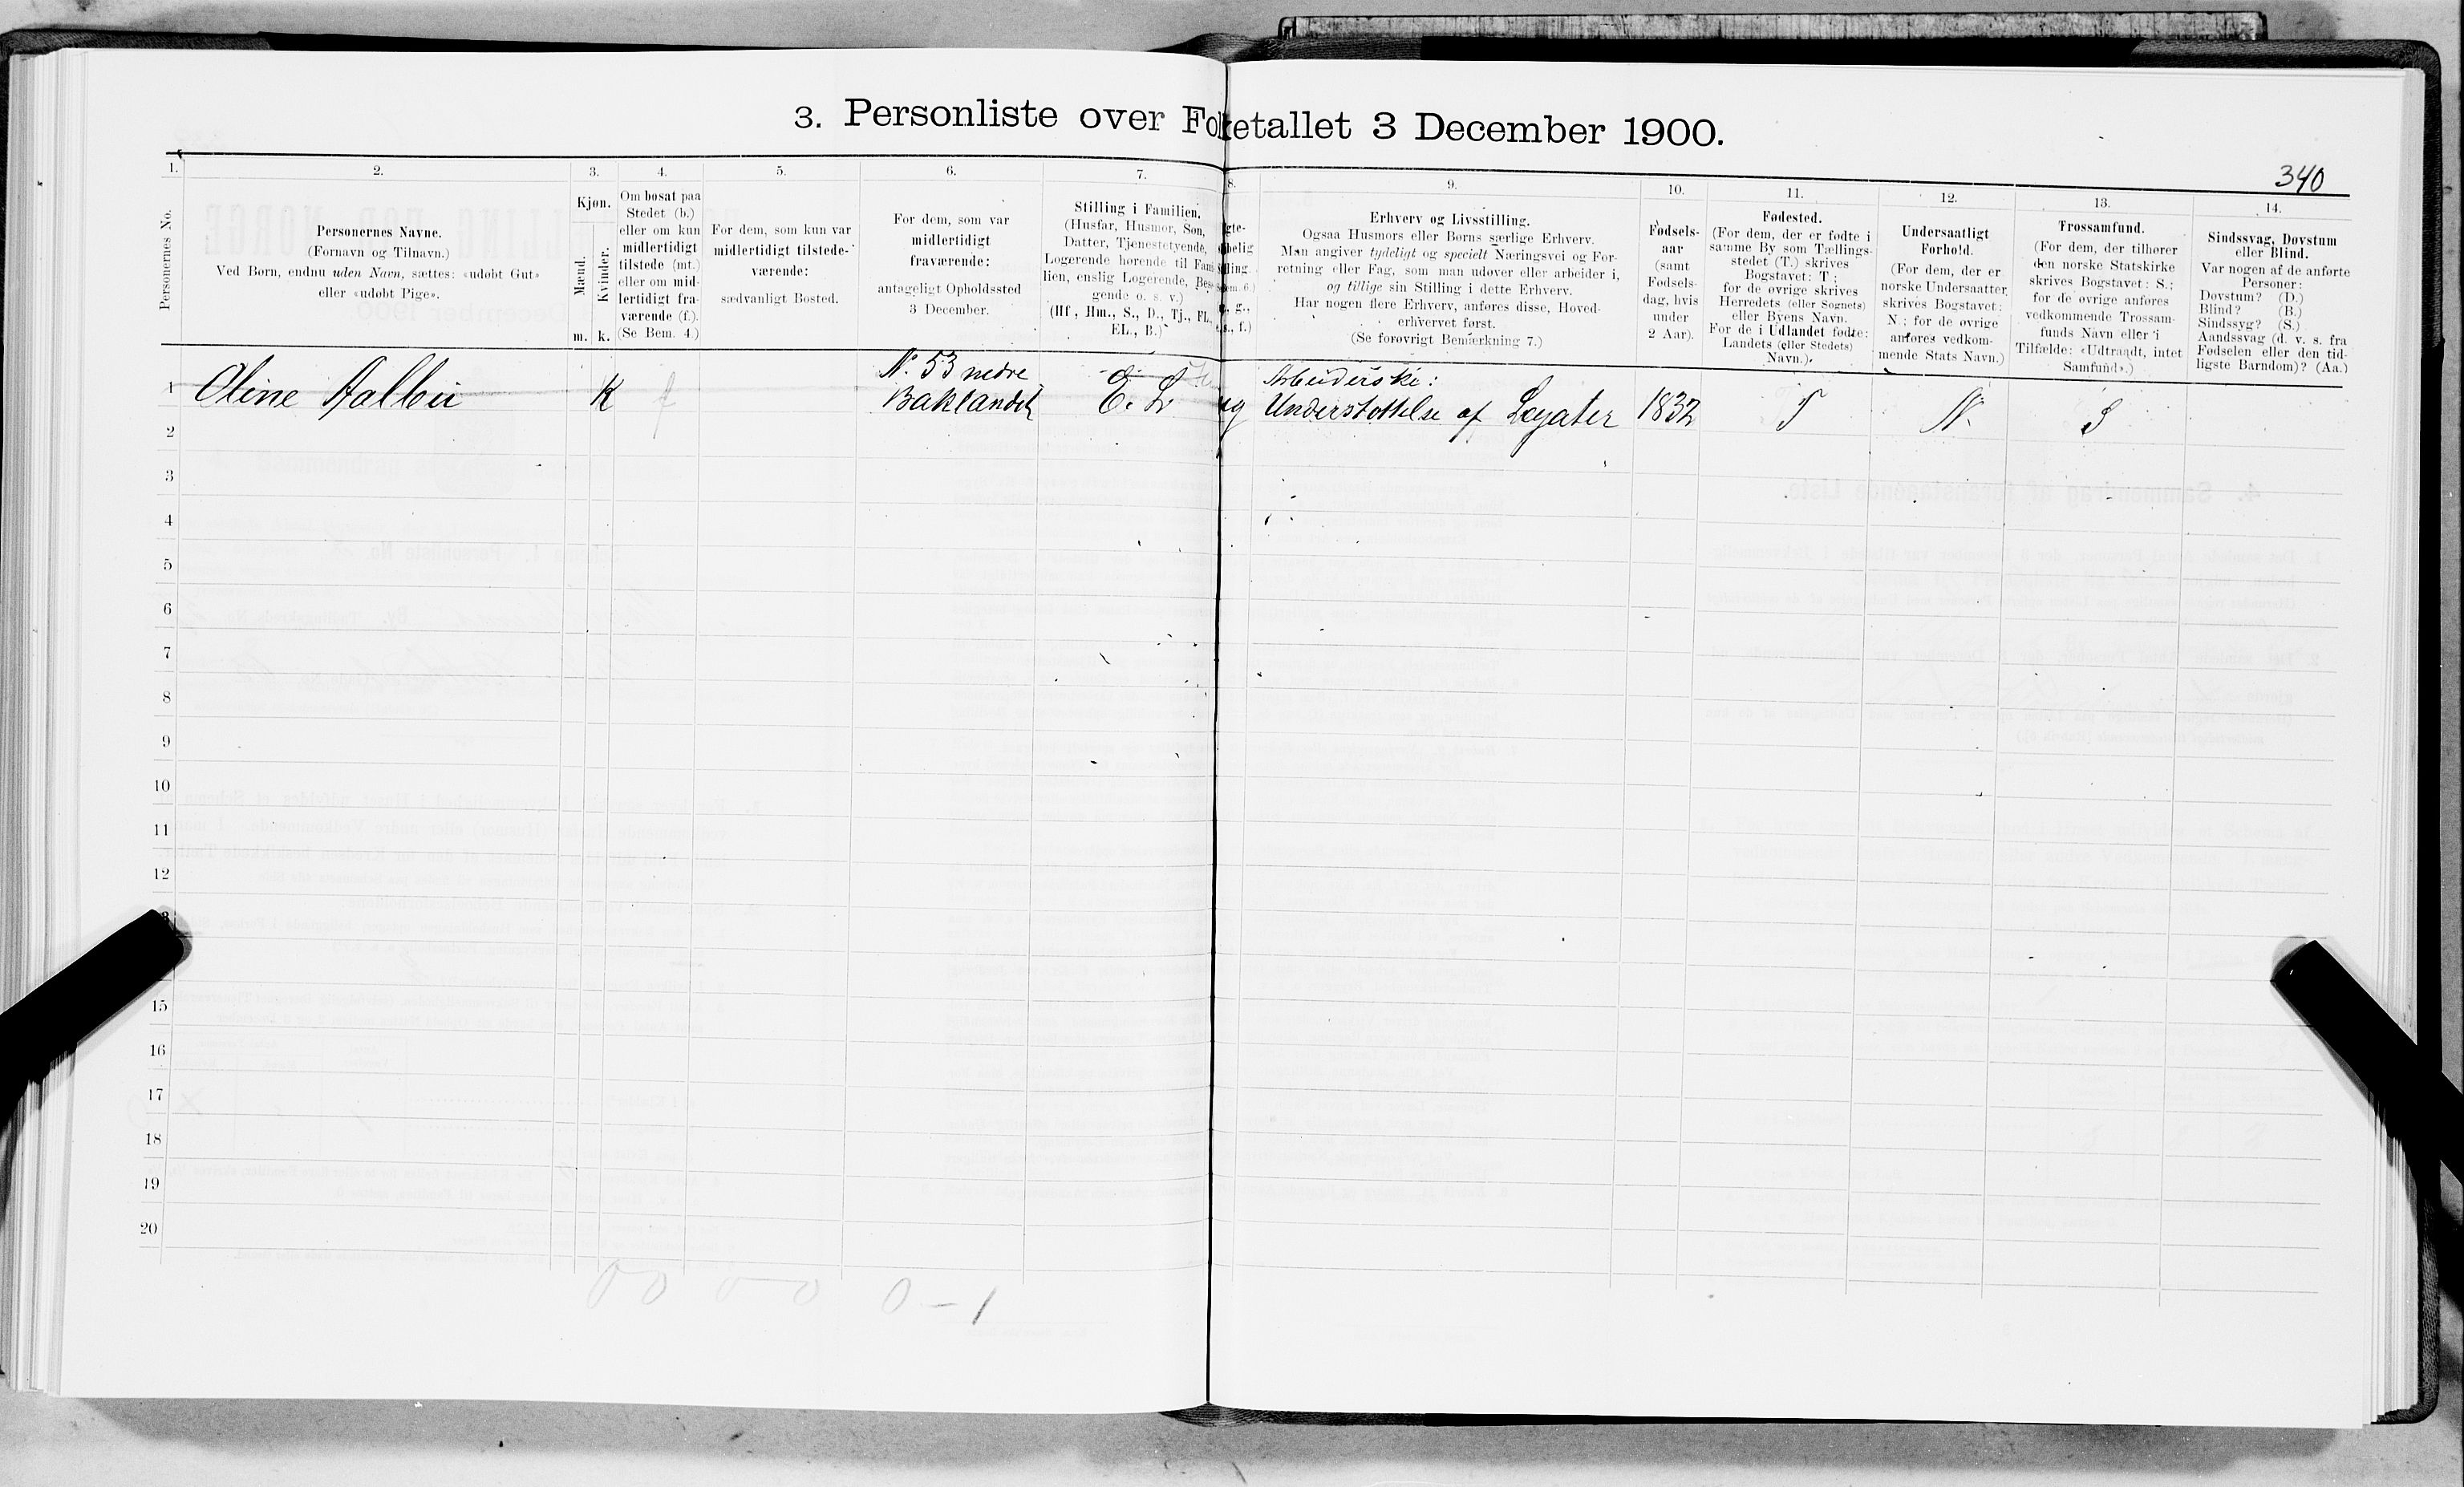 3. Personliste over Folketallet 3 December 1900.
340
1. 2. 3. 4. 5. 6. 7. 8. 9. 10. 11. 12. 13. 14.
Personernes No.
Personernes Navne.
(Fornavn og Tilnavn.)
Ved Børn, endnu uden Navn, sættes: «udøbt Gut»
eller «udøbt Pige».
Kjøn.
Mænd.
Kvinder.
m. k.
Om bosat paa
Stedet (b.)
eller om kun
midlertidigt
tilstede (mt.)
eller om mid-
lertidigt fra-
værende (f.).
(Se Bem. 4.)
For dem, som kun var
midlertidigt tilstede-
værende:
sædvanligt Bosted.
For dem, som var
midlertidigt
fraværende:
antageligt Opholdssted
3 December.
Stilling i Familien.
(Husfar, Husmor, Søn,
Datter, Tjenestetyende,
Logerende hørende til Fami-
lien, enslig Logerende, Besø-
gende o. s. v.)
(Hf, Hm., S., D., Tj., FL,
EL., B.)
gte-
belig
lling.
g.,
f.)
Erhverv og Livsstilling.
Ogsaa Husmors eller Børns særlige Erhverv.
Man angiver tydeligt og specielt Næringsvei og For-
retning eller Fag, som man udøver eller arbeider i,
og tillige sin Stilling i dette Erhverv.
Har nogen flere Erhverv, anføres disse, Hoved-
erhvervet først.
(Se forøvrigt Bemærkning 7.)
Fødsels-
aar
(samt
Fødsels-
dag, hvis
under
2 Aar).
Fødested.
(For dem, der er fødte i
samme By som Tællings-
stedet (T.) skrives
Bogstavet: T;
for de øvrige skrives
Herredets (eller Sognets)
eller Byens Navn.
For de i Udlandet fødte:
Landets (eller Stedets)
Navn.).
Undersaatligt
Forhold.
(For dem, der er
norske Undersaatter,
skrives Bogstavet:
N.; for de øvrige
anføres vedkom-
mende Stats Navn.)
Trossamfund.
(For dem, der tilhører
den norske Statskirke
skrives Bogstavet: S.;
for de øvrige anføres
vedkommende Trossam-
funds Navn eller i
Tilfælde: «Udtraadt, intet
Samfund».)
Sindssvag, Døvstum
eller Blind.
Var nogen af de anførte
Personer:
Døvstum? (D.)
Blind? (B.)
Sindssyg? (S.)
Aandssvag (d. v. s. fra
Fødselen eller den tid-
ligste Barndom)? (Aa.)
1 Oline Aalbu K f N: 53 nedre Baklandet E. L ug Arbeiderske: Understøttelse af Legater 1832 T N. S
2
3
4
5
6
7
8
9
10
11
12
15
16
17
18
19
20
00 0-0 0-1